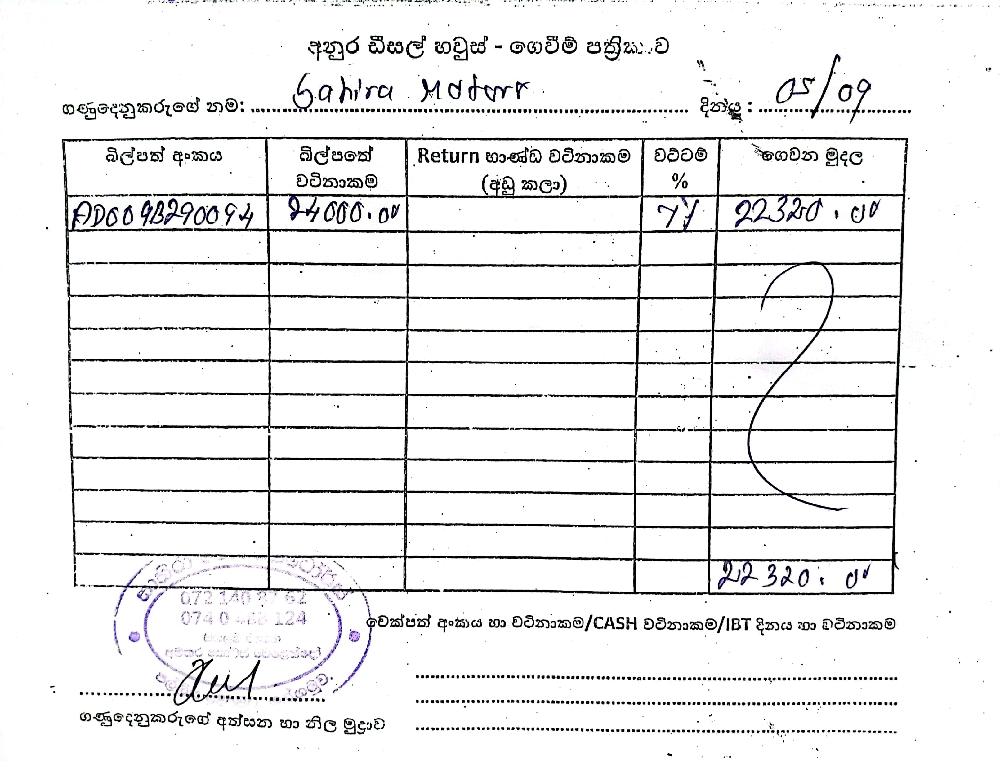 අනුර ඩීසල් හවුස් - ගෙවීම් පත්‍රිකාව
ගණුදෙනුකරුගේ නම: Sahira Motors දිනය: 05/09
බිල්පත් අංකය බිල්පතේ වටිනාකම Return භාණ්ඩ වටිනාකම (අඩු කලා) වට්ටම් % ගෙවන මුදල
AD009B290094 24000.00 7% 22320.00
22320.00
072 140
074 0 124
චෙක්පත් අංකය හා වටිනාකම/CASH වටිනාකම/IBT දිනය හා වටිනාකම
ගණුදෙනුකරුගේ අත්සන හා නිල මුද්‍රාව